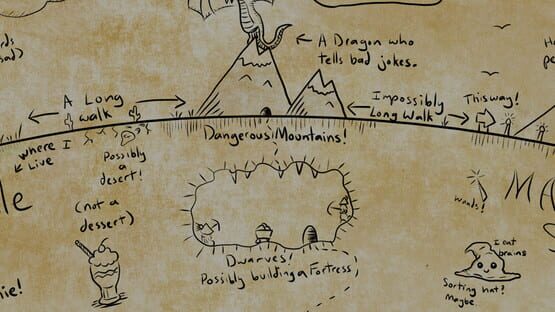 rds
sad)
A Dragon who
tells bad jokes.
A Long
walk
Impossibly
Long Walk
This way!
Dangerous Mountains!
Where I
Live
Possibly
a
desert!
(not a
dessert)
le
MA
wands!
I eat
brains
Sorting hat?
Maybe.
Dwarves!
Possibly building a Fortress,
nie!